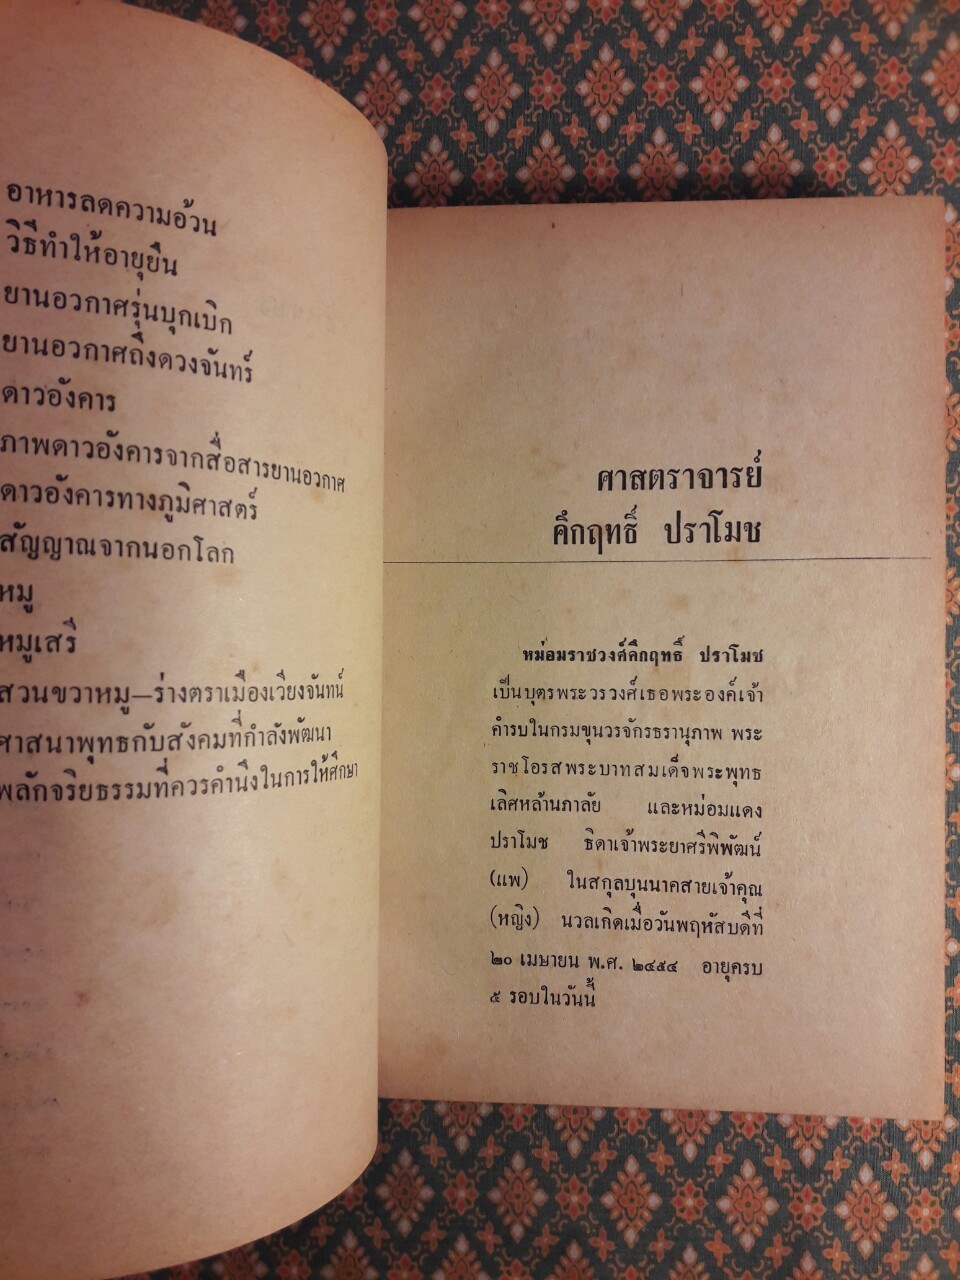 อาหารลดความอ้วน
วิธีทำให้อายุยืน
ยานอวกาศรุ่นบุกเบิก
ยานอวกาศถึงดวงจันทร์
ดาวอังคาร
ภาพดาวอังคารจากสื่อสารยานอวกาศ
ดาวอังคารทางภูมิศาสตร์
สัญญาณจากนอกโลก
หมู
หมูเสรี
สวนขวาหมู—ร่างตราเมืองเวียงจันทน์
ศาสนาพุทธกับสังคมที่กำลังพัฒนา
พลักจริยธรรมที่ควรคำนึงในการให้ศึกษา
ศาสตราจารย์
คึกฤทธิ์ ปราโมช
หม่อมราชวงศ์คึกฤทธิ์ ปราโมช
เป็นบุตรพระวรวงศ์เธอพระองค์เจ้า
คำรบในกรมขุนวรจักรธรานุภาพ พระ
ราชโอรสพระบาทสมเด็จพระพุทธ
เลิศหล้านภาลัย และหม่อมแดง
ปราโมช ธิดาเจ้าพระยาศรีพิพัฒน์
(แพ) ในสกุลบุนนาคสายเจ้าคุณ
(หญิง) นวลเกิดเมื่อวันพฤหัสบดีที่
๒๐ เมษายน พ.ศ. ๒๔๕๔ อายุครบ
๕ รอบในวันนี้